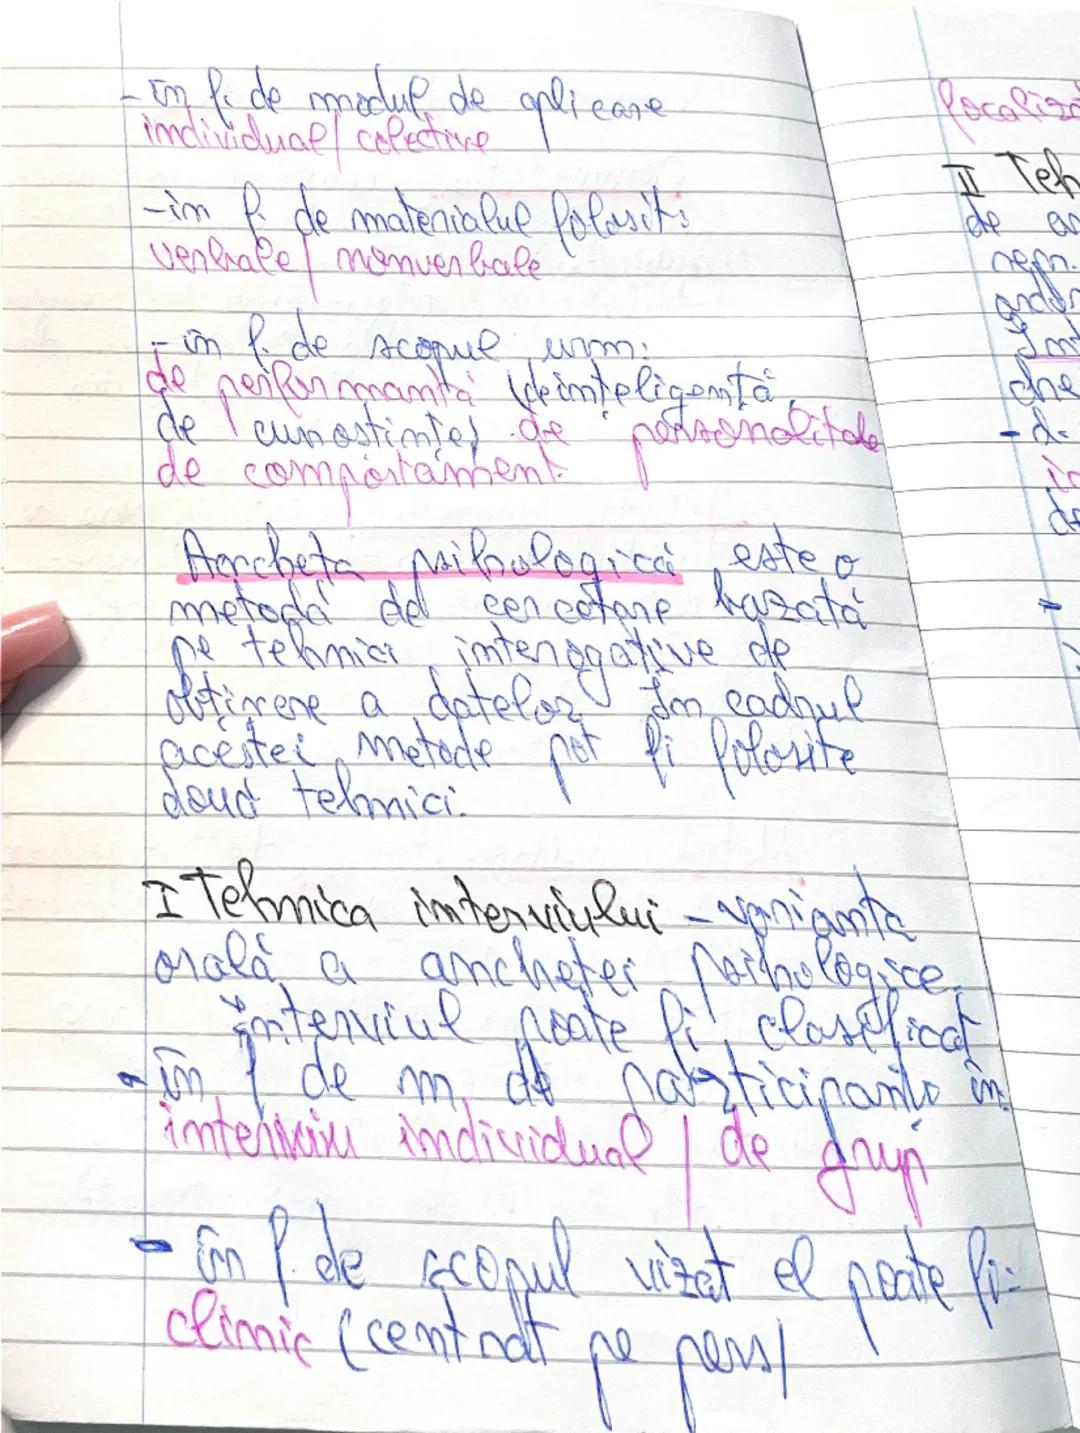 - în f. de modul de aplicare
individual/ colective
- în f. de materialul folosit:
verbale/ nonverbale
- în f. de scopul urm:
de performanță (de inteligență,
de cunoștințe) de personalitate
de comportament.
Ancheta psihologică este o
metodă de cercetare bazată
pe tehnici interogative de
obținere a datelor În cadrul
acestei metode pot fi folosite
două tehnici:
I Tehnica interviului - varianta
orală a anchetei psihologice.
Interviul poate fi clasificat
- în f de n. de participanți în:
interviu individual / de grup
- în f. de scopul vizat el poate fi:
clinic (centrat pe pers/
II Teh
de
repr.
che
- d.